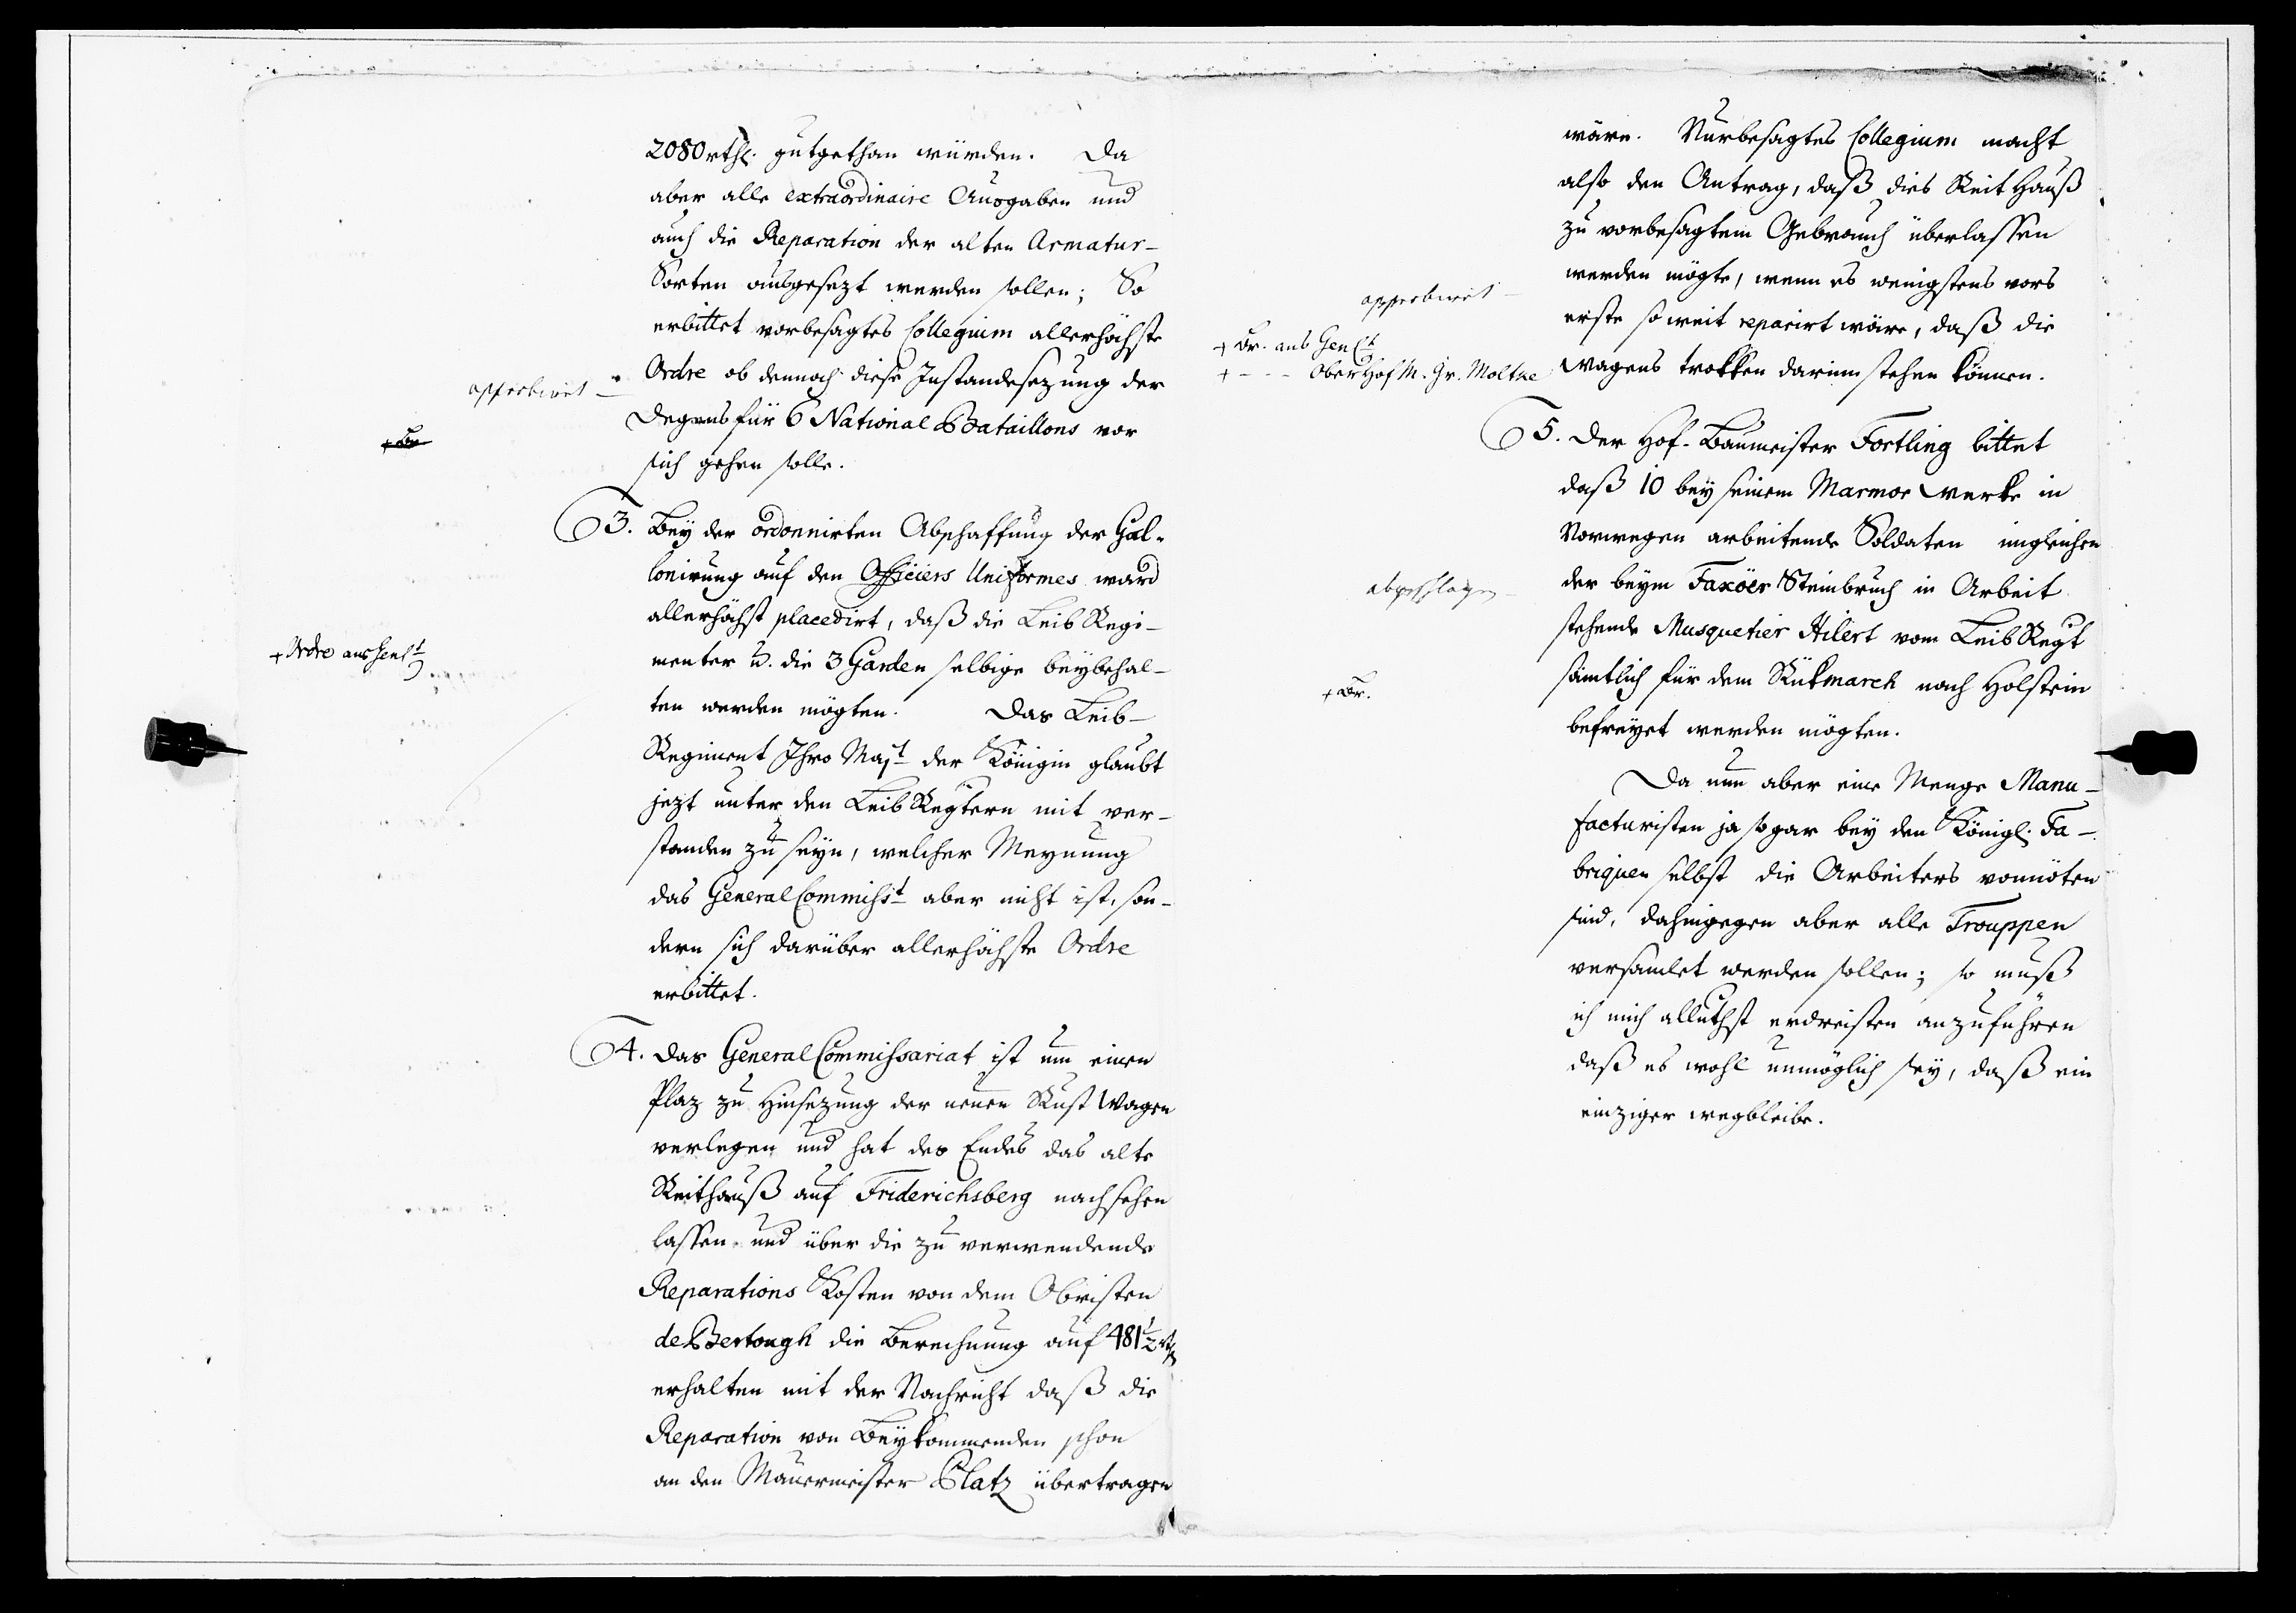 2080 rthl. gutgethan würden. Da
aber alle extraordinaire Ausgaben und
auch die Reparation der alten Armatur-
Sorten ausgesezt werden sollen; So
erbittet vorbesagtes Collegium allerhöchste
Ordre ob dennoch diese Instandesezung der
approbiret -
Degens für 6 National Bataillons vor
sich gehen solle.
3. Bey der ordonnirten Abschaffung der Gal-
lonirung auf den Officiers Uniformes ward
allerhöchst placedirt, daß die Leib Regi-
menter u. die 3 Garden selbige beybehal-
+ Ordre ans Genlt
ten werden mögten. Das Leib-
Regiment Ihro Majt der Königin glaubt
jezt unter den Leib Regtern mit ver-
standen zu seyn, welcher Meynung
das General Commisst aber nicht ist, son-
dern sich darüber allerhöchste Ordre
erbittet.
4. Das General Commissariat ist um einen
Plaz zu Hinsezung der neuen Rust Wagen
verlegen und hat des Endes das alte
Reithauß auf Friderichsberg nachsehen
lassen und über die zu verwendende
Reparations Kosten von dem Obristen
de Bertough die Berechnung auf 481½ rthl
erhalten mit der Nachricht daß die
Reparation von Beykommenden schon
an den Mauermeister Platz übertragen
wäre. Nurbesagtes Collegium macht
also den Antrag, daß dies Reit Hauß
zu vorbesagtem Gebrauch überlassen
werden mögte, wenn es wenigstens vors
approbiret -
erste so weit reparirt wäre, daß die
+ Or. ans Genlt
+ - - - Ober Hof M. Gr. Moltke
Wagens trokken darinn stehen können.
5. Der Hof-Baumeister Fortling bittet
daß 10 bey seinem Marmor Werke in
Norwegen arbeitende Soldaten imgleichen
der beym Faxöer Steinbruch in Arbeit
abgeschlagen -
stehende Musquetier Hilert vom Leib Regt
sämtlich für dem Rükmarch nach Holstein
+ Or.
befreyet werden mögten.
Da nun aber eine Menge Manu-
facturisten ja sogar bey den Königl. Fa-
briquen selbst die Arbeiters vonnöten
sind, dahingegen aber alle Trouppen
versamlet werden sollen; so muß
ich mich alluthst erdreisten anzuführen
daß es wohl unmöglich sey, daß ein
einziger wegbleibe.